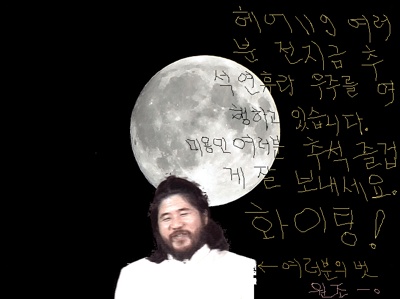 헤어119 여러
분 전지금 추
석 연휴라 우주를 여
행하고 있습니다.
미용인 여러분 추석 즐겁
게 잘 보내세요.
화이팅!
← 여러분의 벗
원조